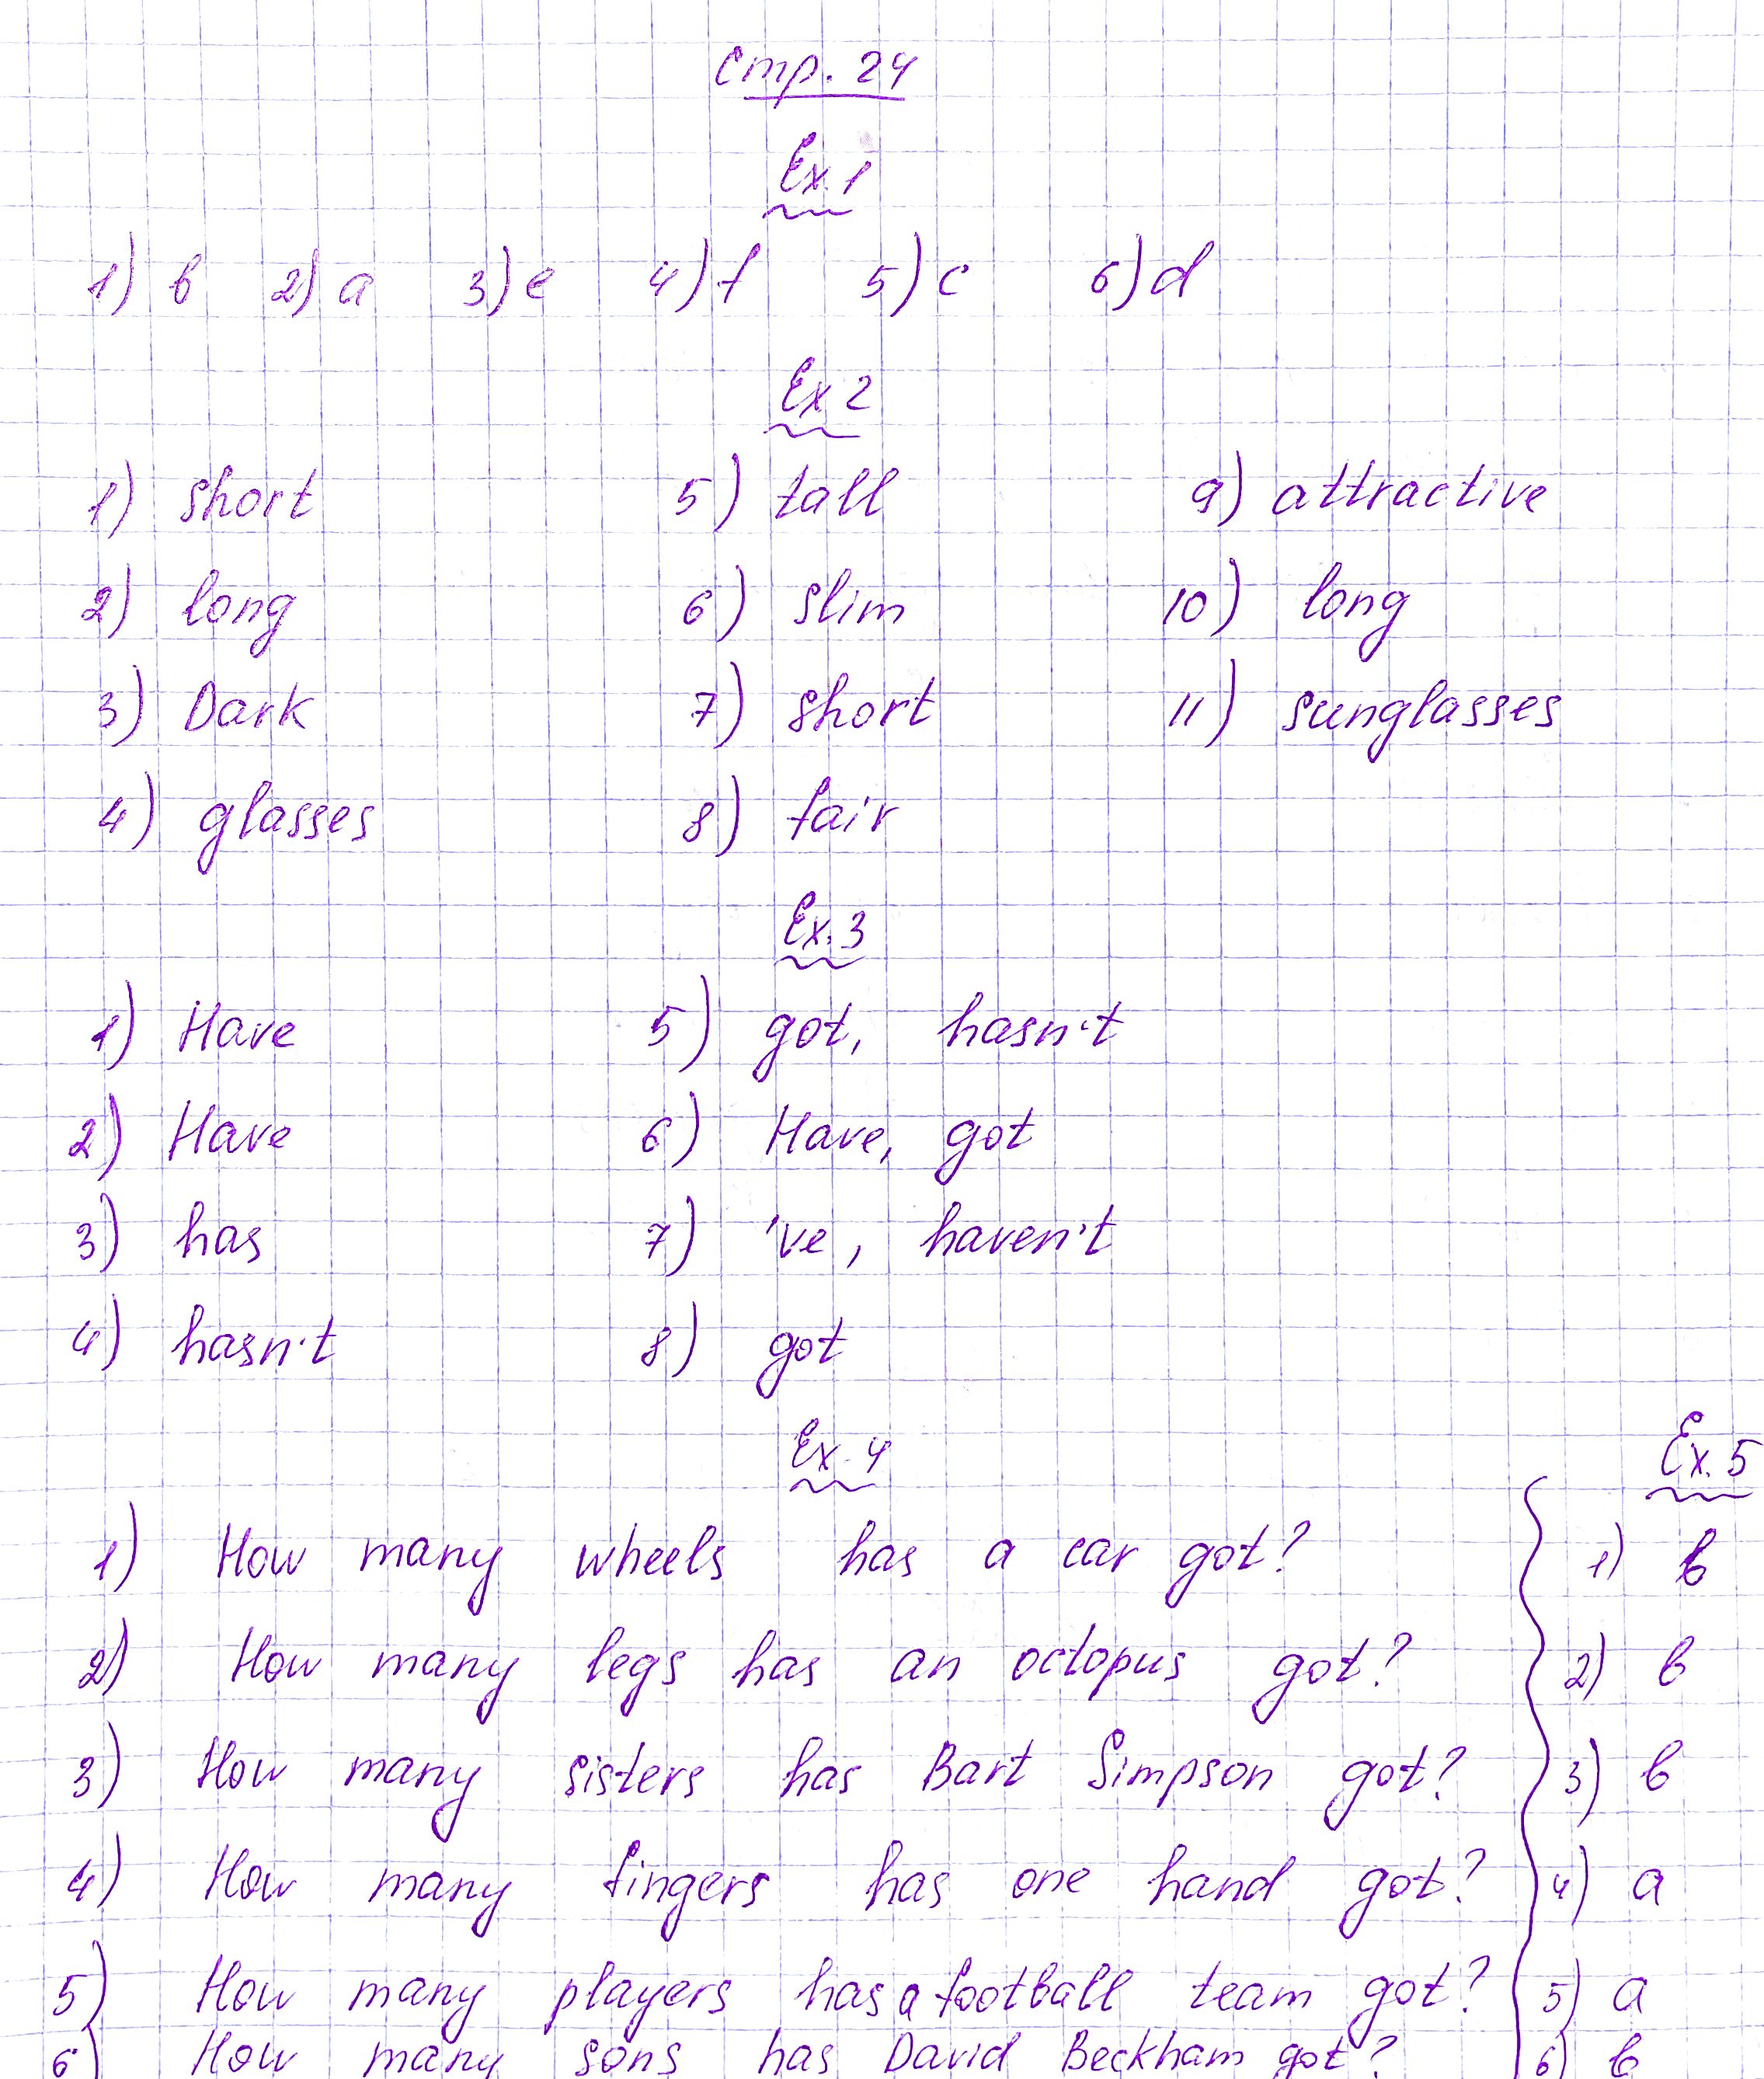 Стр. 24
Ex. 1
1) b 2) a 3) e 4) f 5) c 6) d
Ex 2
1) short 5) tall 9) attractive
2) long 6) slim 10) long
3) Dark 7) short 11) sunglasses
4) glasses 8) fair
Ex. 3
1) Have 5) got, hasn't
2) Have 6) Have, got
3) has 7) 've, haven't
4) hasn't 8) got
Ex. 4
1) How many wheels has a car got?
2) How many legs has an octopus got?
3) How many sisters has Bart Simpson got?
4) How many fingers has one hand got?
5) How many players has a football team got?
6) How many sons has David Beckham got?
Ex. 5
1) b
2) b
3) b
4) a
5) a
6) b